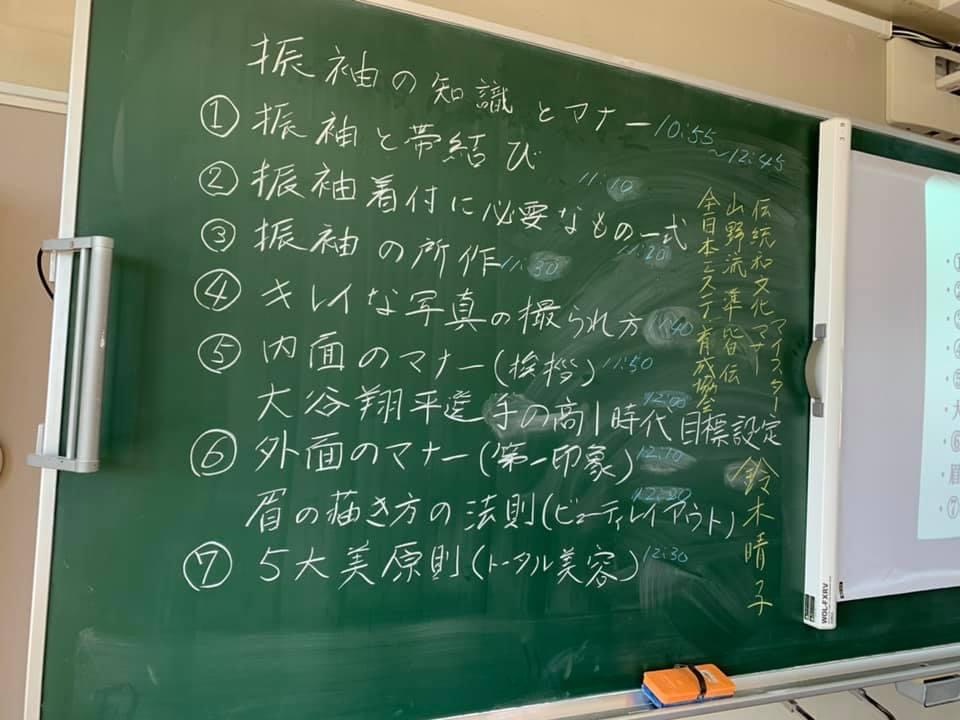 振袖の知識とマナー 10:55
～12:45
① 振袖と帯結び
11:10
② 振袖着付に必要なもの一式
11:20
③ 振袖の所作 11:30
④ キレイな写真の撮られ方 11:40
⑤ 内面のマナー(挨拶) 11:50
12:00
大谷翔平選手の高1時代目標設定
⑥ 外面のマナー(第一印象) 12:10
12:20
眉の描き方の法則(ビューティレイアウト)
⑦ 5大美原則(トータル美容) 12:30
伝統和文化マナーマイスター
山野流 準皆伝
全日本エステ育成協会
鈴木晴子
WOL-FXRV
①
②
③
④
⑤
大
⑥
眉
⑦